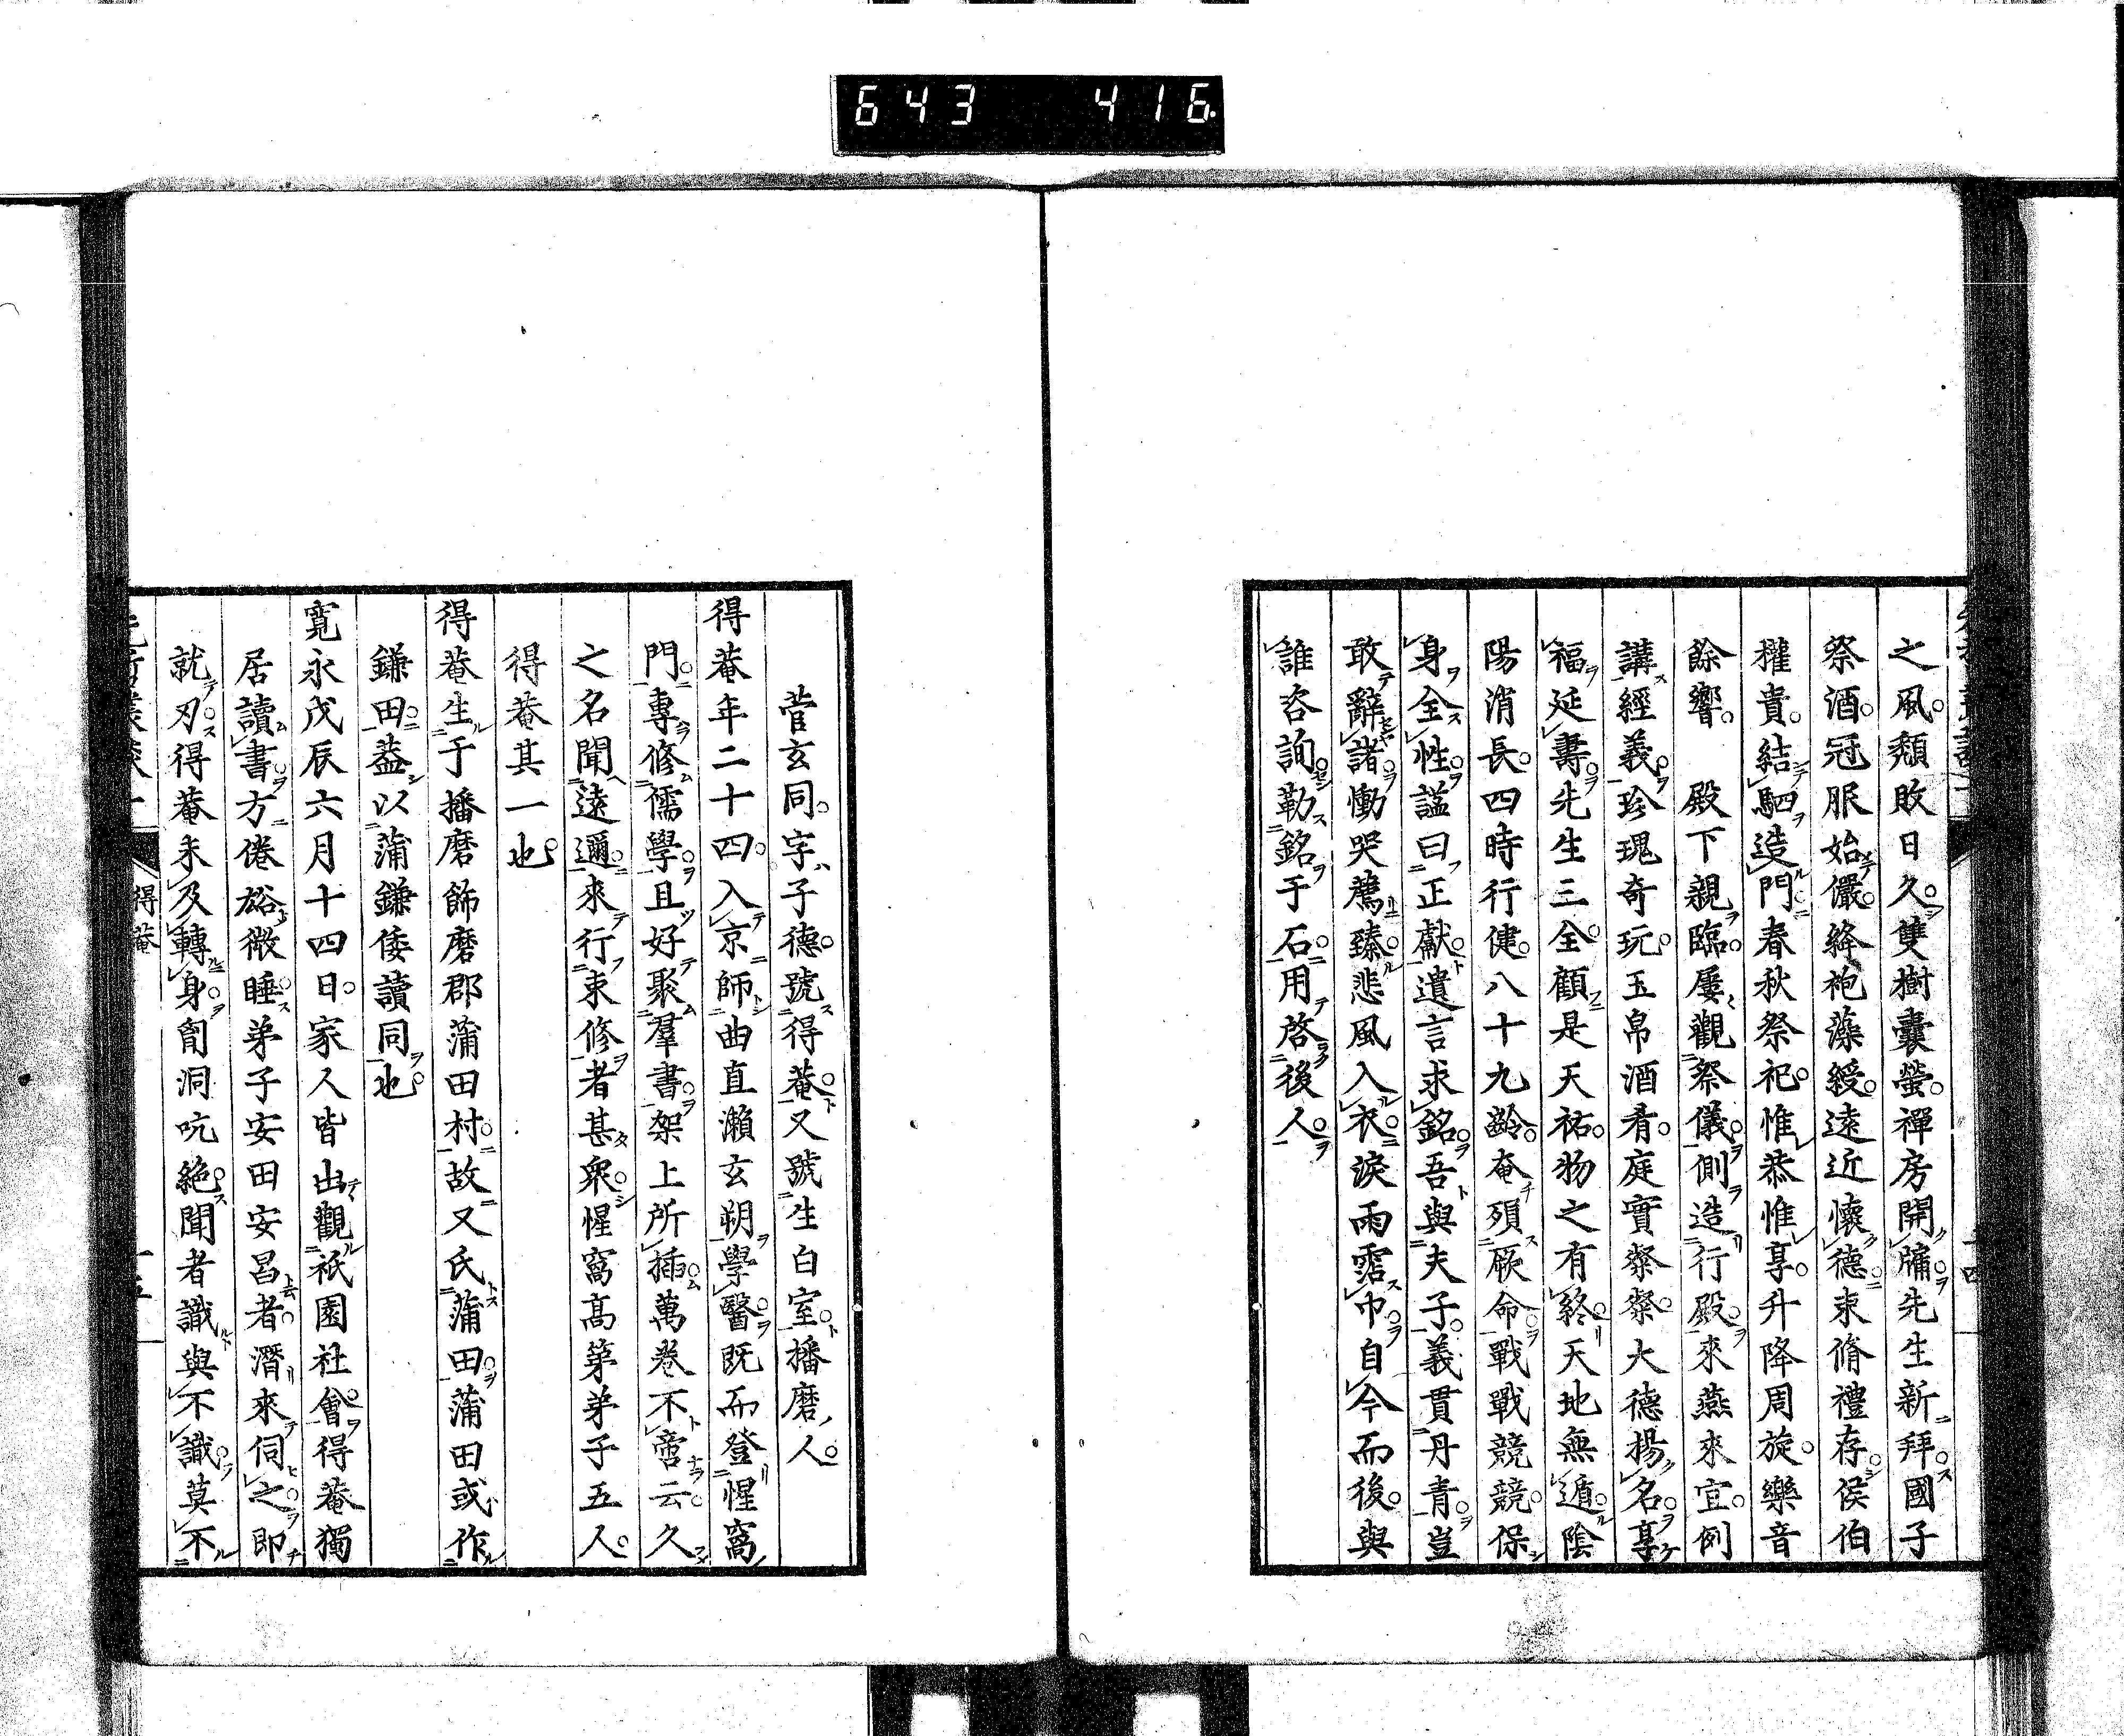 643 416
之風頽敗日久雙樹囊螢禪房開牖先生新拜國子
祭酒冠服始儼絳袍藻綬遠近懷德束脩禮存侯伯
權貴結駟造門春秋祭祀惟恭惟享升降周旋樂音
餘響 殿下親臨屢觀祭儀側造行殿來燕來宜例
講經義珍瑰奇玩玉帛酒肴庭實粲粲大德揚名享
福延壽先生三全顧是天祐物之有終天地無遁陰
陽消長四時行健八十九齡奄殞厥命戰戰競競保
身全性謚曰正獻遺言求銘吾與夫子義貫丹青豈
敢辭諸慟哭薦臻悲風入衣淚雨霑巾自今而後與
誰咨詢勒銘于石用啓後人
菅玄同字子德號得菴又號生白室播磨人
得菴年二十四入京師曲直瀨玄朔學醫既而登惺窩
門專修儒學且好聚羣書架上所插萬卷不啻云久
之名聞遠邇來行束修者甚衆惺窩高第弟子五人
得菴其一也
得菴生于播磨飾磨郡蒲田村故又氏蒲田蒲田或作
鎌田蓋以蒲鎌倭讀同也
寬永戊辰六月十四日家人皆出觀祇園社會得菴獨
居讀書方倦谿微睡弟子安田安昌者潛來伺之即
就刃得菴未及轉身胷洞吭絕聞者識與不識莫不
得菴